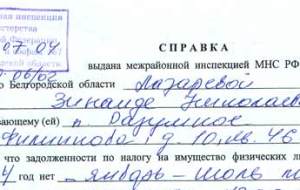 ная инспекция
07.04
СПРАВКА
выдана межрайонной инспекцией МНС РФ
о Белгородской области Лазаревой
Зинаиде Николаев
вающему (ей) п. Разумное
д. 10, кв. 46
что задолженности по налогу на имущество физических л
4 год нет - январь - июль